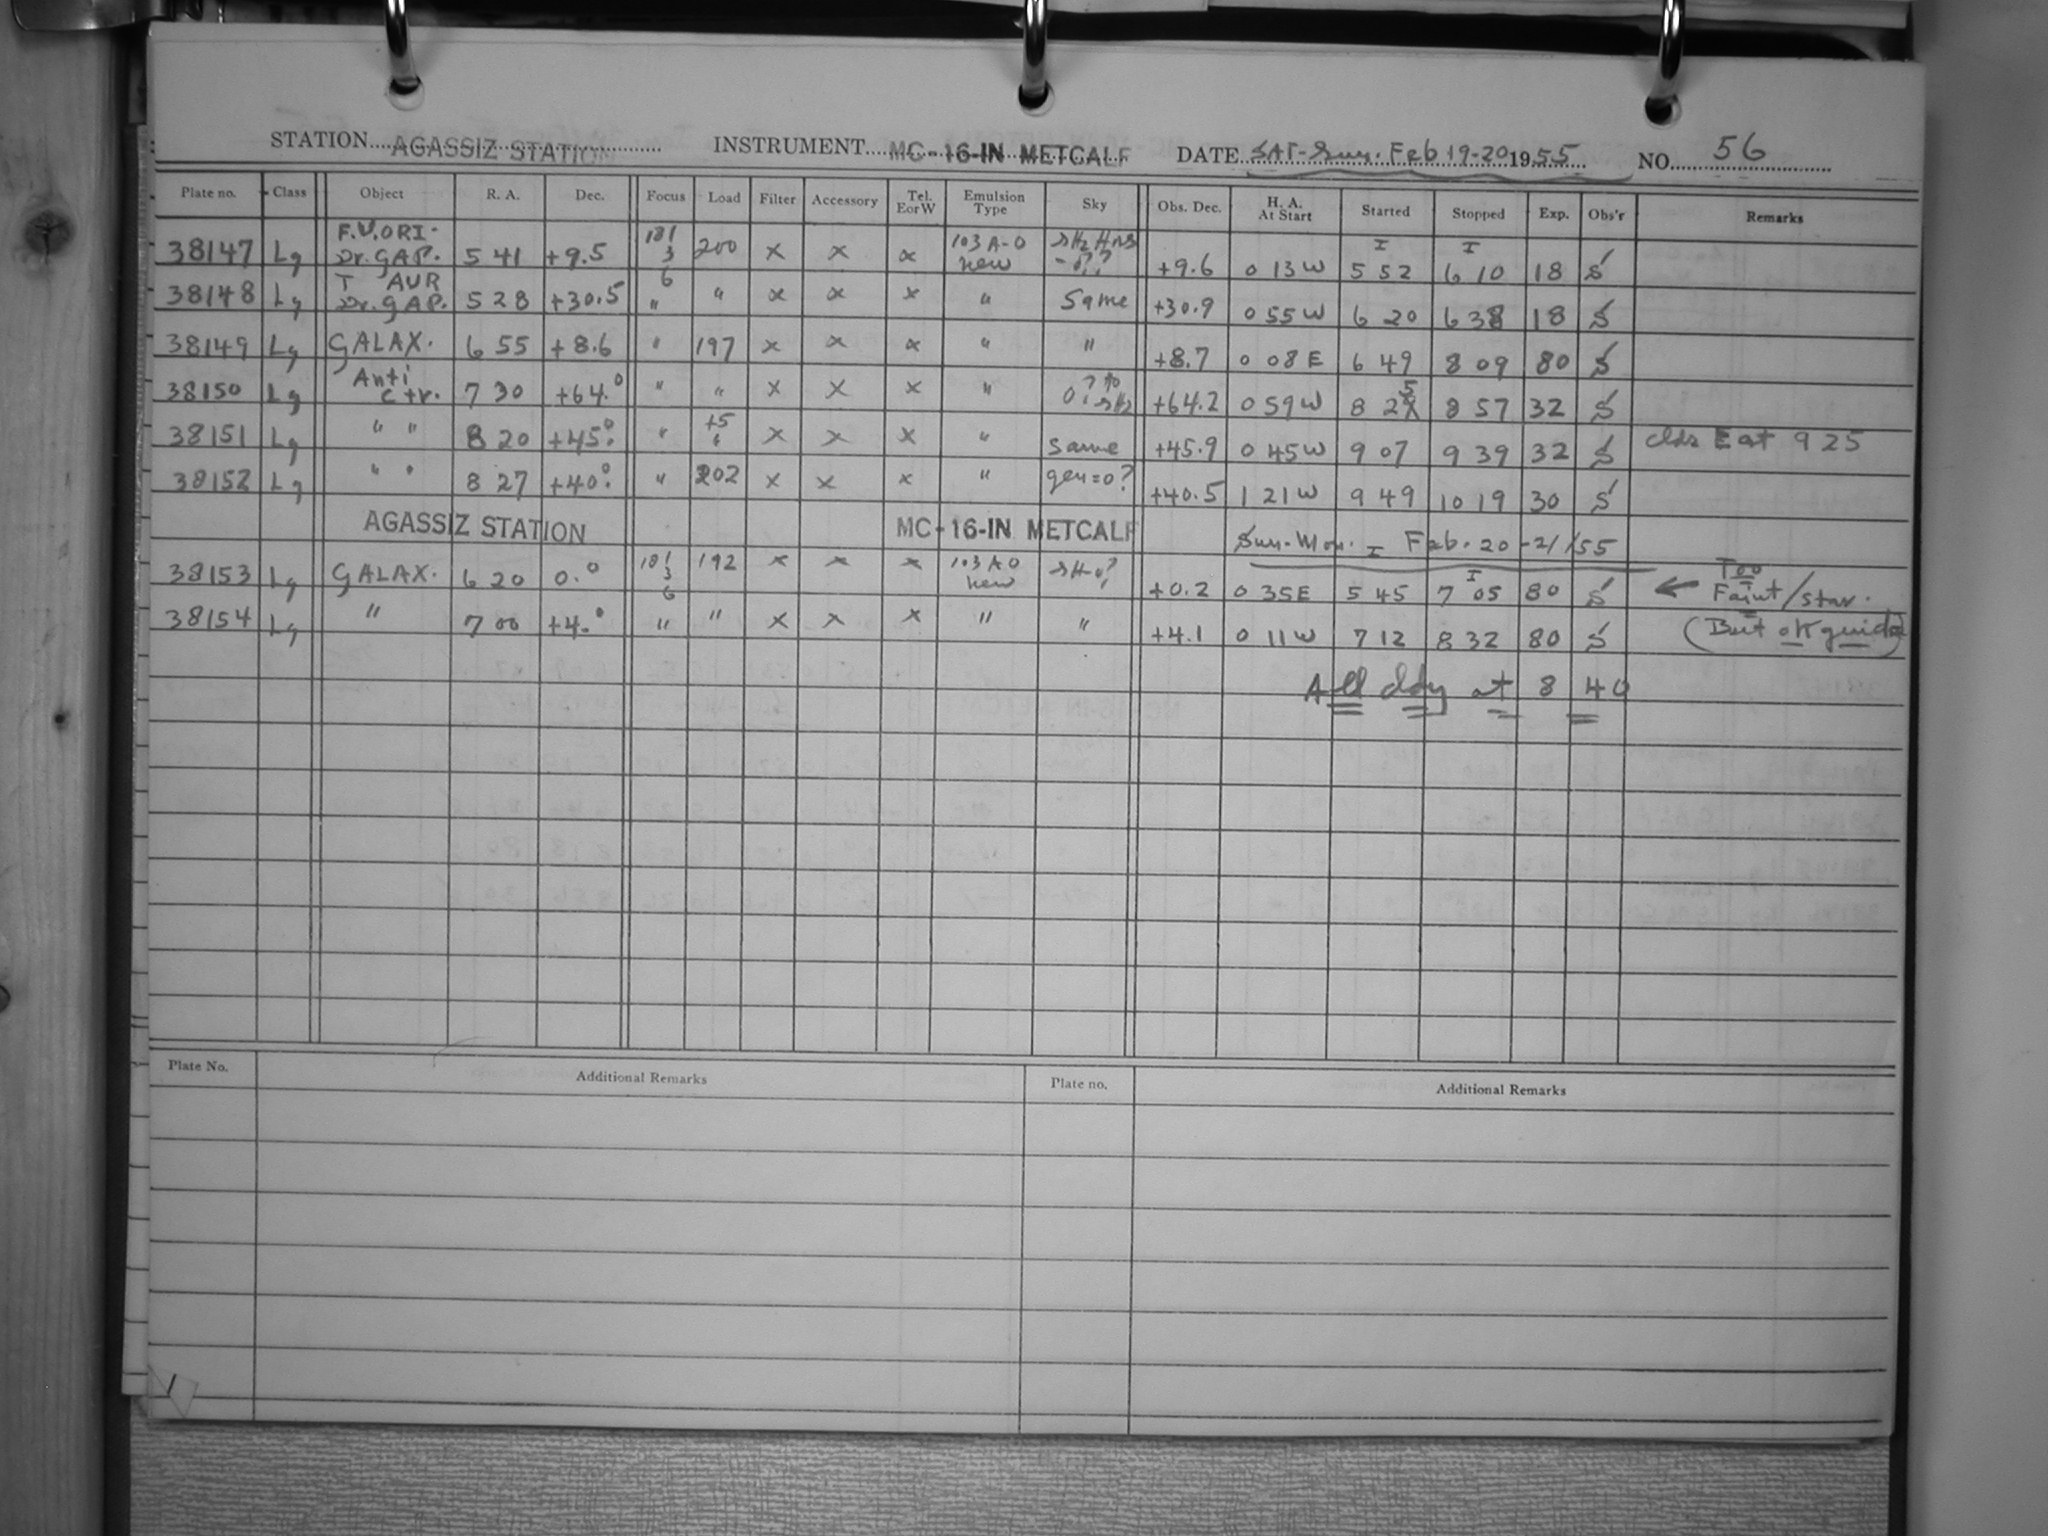 STATION AGASSIZ STATION INSTRUMENT MC-16-IN METCALF DATE SAT-Sun. Feb 19-20 1955 NO. 56
Plate no. Class Object R. A. Dec. Focus Load Filter Accessory Tel. E or W Emulsion Type Sky Obs. Dec. H. A. At Start Started Stopped Exp. Obs'r Remarks
38147 Lg F.U.ORI. Dr. GAP. 5 41 +9.5 200 x x x 103 A-O new +9.6 0 13 W 5 52 6 10 18 S
38148 Lg T AUR Dr. GAP. 5 28 +30.5 " " x x x " Same +30.9 0 55 W 6 20 6 38 18 S
38149 Lg GALAX. 6 55 +8.6 " 197 x x x " " +8.7 0 08 E 6 49 8 09 80 S
38150 Lg Anti Ctr. 7 30 +64.° " " x x x " +64.2 0 59 W 8 25 8 57 32 S
38151 Lg " " 8 20 +45.° " +5 " x x x " same +45.9 0 45 W 9 07 9 39 32 S clds E at 9 25
38152 Lg " " 8 27 +40.° " 202 x x x " gen=0? +40.5 1 21 W 9 49 10 19 30 S
AGASSIZ STATION MC-16-IN METCALF Sun-Mon. Feb. 20-21/55
38153 Lg GALAX. 6 20 0.° 192 x x x 103 A O new +0.2 0 35 E 5 45 7 05 80 S ← Too Faint/star.
38154 Lg " 7 00 +4.° " " x x x " " +4.1 0 11 W 7 12 8 32 80 S (But ok guide)
All cldy at 8 40
Plate No. Additional Remarks Plate no. Additional Remarks